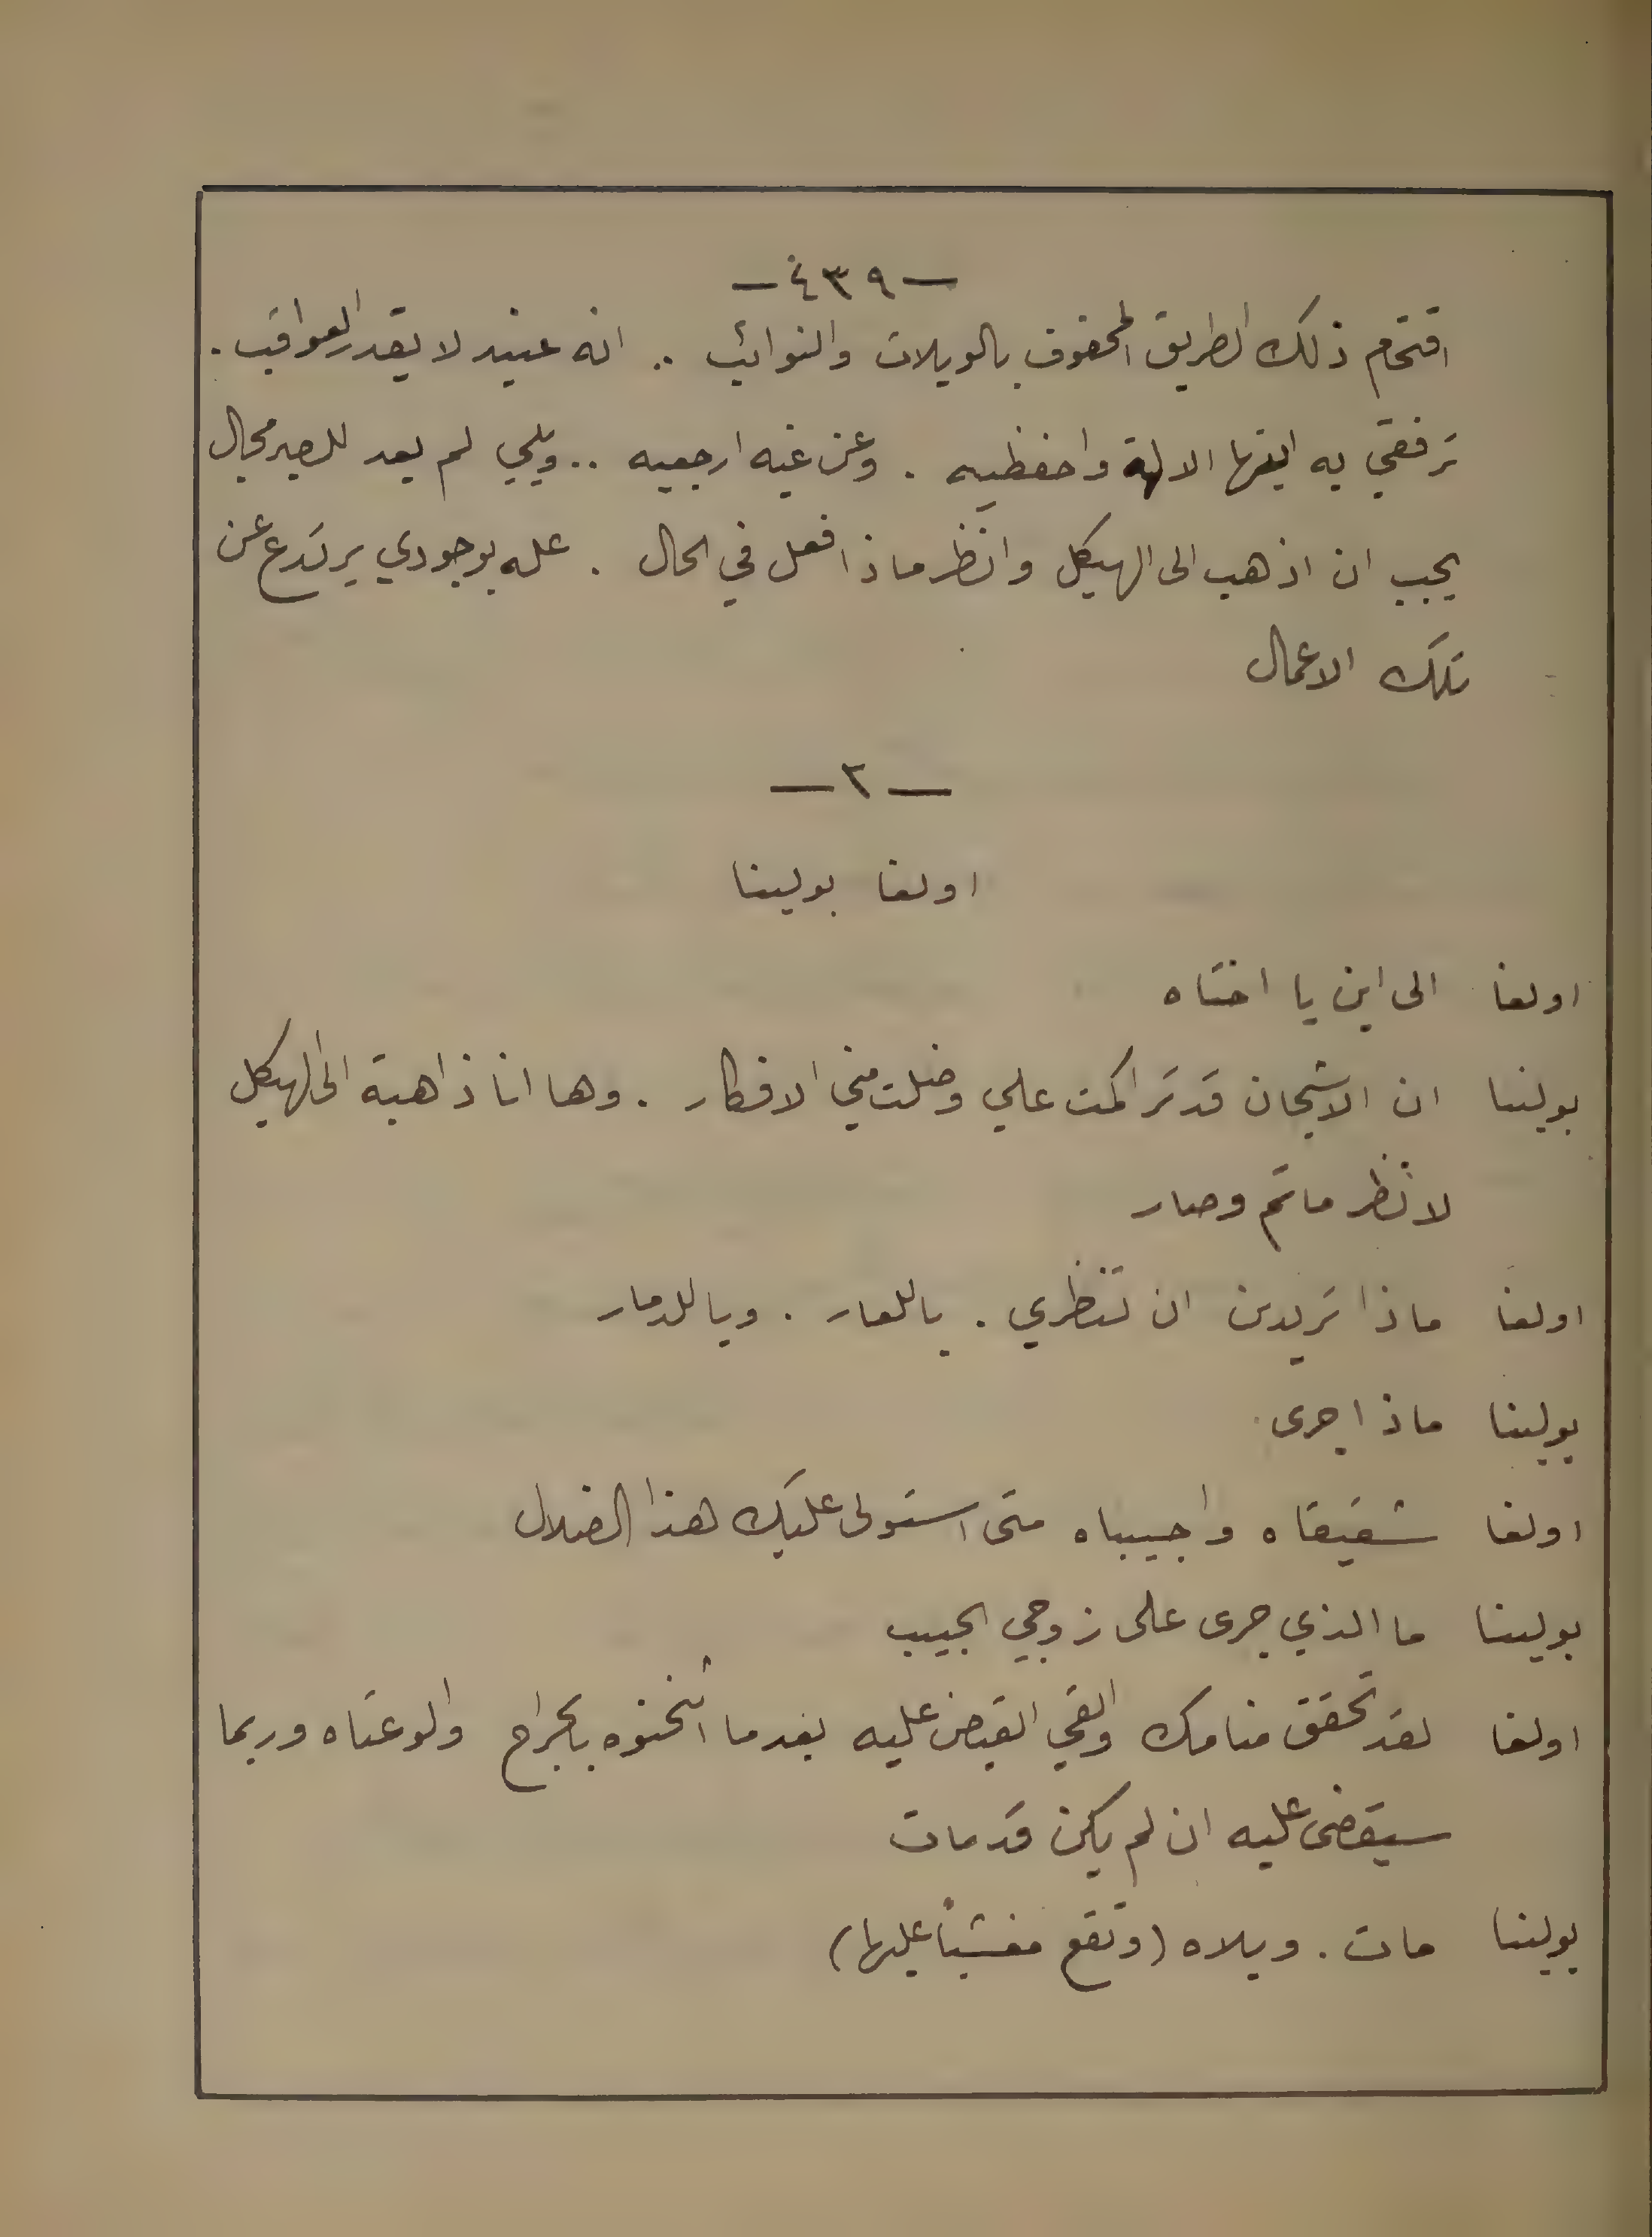 -٤٣٩-
اقتحام ذلك الطريق المحفوف بالويلات والنوائب .. انه عنيد لا يقدر العواقب .
ترفقي به ايتها الالهة واحفظيه . وعن غيه ارجعيه .. ويلي لم يعد للصبر مجال
يجب ان اذهب الى الهيكل وانظر ماذا افعل في الحال . عله بوجودي يرتدع عن
تلك الاعمال
-٢-
اولغا بولينا
اولغا الى اين يا اختاه
بولينا ان الاشجان قد تراكمت علي وضلت مني الافكار . وها انا ذاهبة الى الهيكل
لانظر ما تم وصار
اولغا ماذا تريدين ان تنظري . ياللعار . وياللدمار
بولينا ماذا جرى
اولغا شقيقاه واحبيباه متى استولى عليك هذا الضلال
بولينا ما الذي جرى على زوجي الحبيب
اولغا لقد تحقق منامك والقي القبض عليه بعدما اثخنوه بالجراح والوعتاه وربما
سيقضى عليه ان لم يكن قد مات
بولينا مات . ويلاه (وتقع مغشياً عليها)